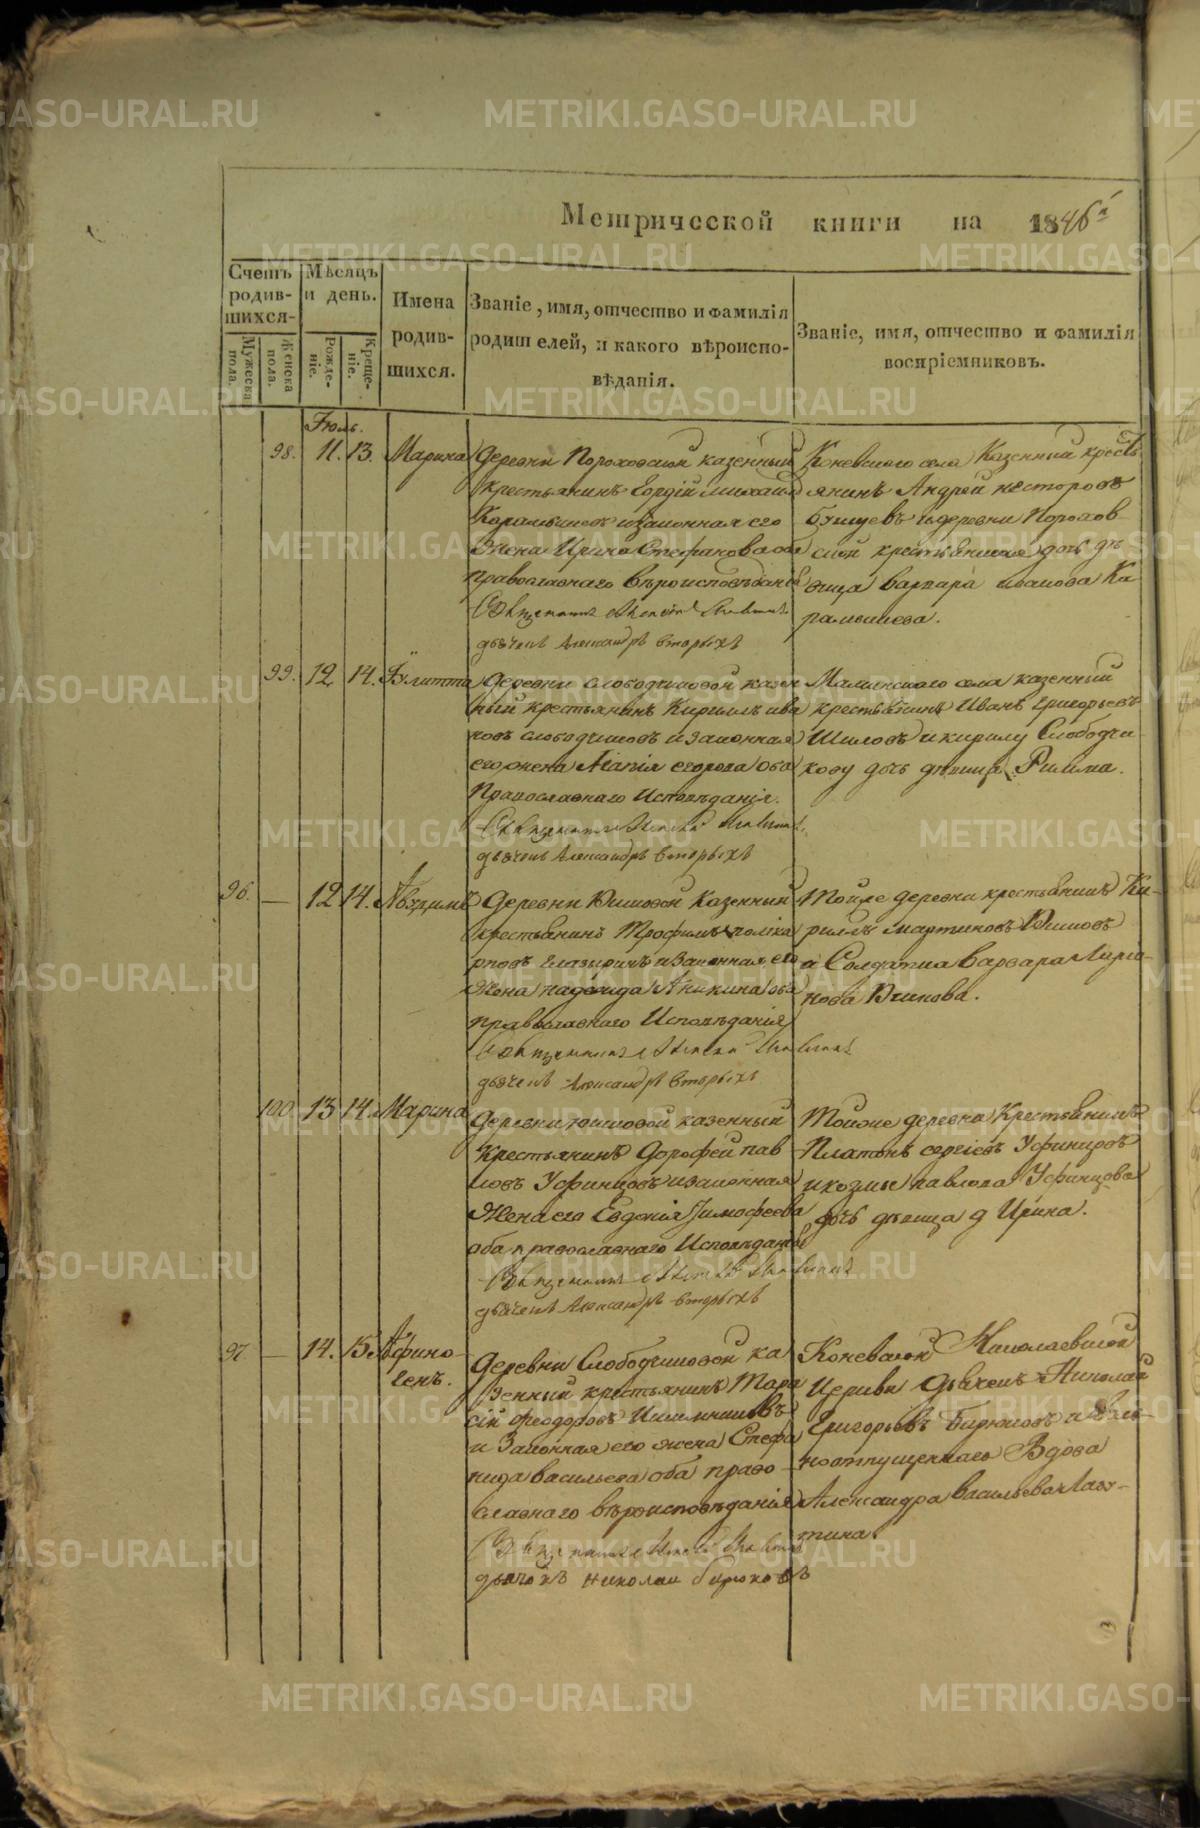 Метрической книги на 1846й
Счетъ родив-шихся.
Мужеска пола.
Женска пола.
Мѣсяцъ и день.
Рожде-ніе.
Креще-ніе.
Имена родив-шихся.
Званіе, имя, отчество и фамилія родителей, и какого вѣроиспо-вѣданія.
Званіе, имя, отчество и фамилія воспріемниковъ.
Іюль.
98. 11. 13. Марина
Деревни Пороховской казенный
крестьянинъ Гордій Михаил
Карамышевъ и законная его
жена Ирина Стефанова оба
православнаго вѣроисповѣданія
Священникъ Алексій
дьячекъ Александръ Вторыхъ
Коневскаго села Казенный кресть
янинъ Андрей Несторовъ
и деревни Порохов
ской крестьянина дочь дѣ
вица Варвара Иванова Ка
рамышева.
99. 12. 14. Іулитта
Деревни Слободчиковой казен
ный крестьянинъ Кириллъ Ива
новъ Слободчиковъ и законная
его жена Агапія Егорова оба
Православнаго Исповѣданія.
Священникъ Алексій
дьячекъ Александръ Вторыхъ
Маминскаго села казенный
крестьянинъ Иванъ Григорьевъ
Шиловъ и Кирилу Слободчи
кову дочь дѣвица Римма.
96. — 12 14. Авудимъ
Деревни казенный
крестьянинъ Трофимъ Полика
рповъ Глазыринъ и законная его
жена Надежда Аникина оба
православнаго Исповѣданія
Священникъ Алексій
дьячекъ Александръ Вторыхъ
Тойже деревни крестьянинъ Ки-
риллъ Мартиновъ
и Солдатка Варвара Ларіо-
нова
100. 13 14. Марина
Деревни казенный
крестьянинъ Дорофей Пав
ловъ Усфинцовъ и законная
жена его Евдокія Тимофеева
оба православнаго Исповѣданія
Священникъ Алексій
дьячекъ Александръ Вторыхъ
Тойже деревни Крестьянинъ
Платонъ Сергіевъ
и Козмы Павлова Усфинцова
дочь дѣвица Ирина.
97. — 14. 15 Афино-
генъ.
Деревни Слободчиковой ка
зенный крестьянинъ Тара
сій Феодоровъ
и Законная его жена Стефа
нида Васильева оба право
славнаго вѣроисповѣданія
Священникъ Алексій
дьячекъ Николай Бирюковъ
Коневской Николаевской
Церкви Дьячекъ Николай
Григорьевъ Бирюковъ и воль
ноотпущеннаго Вдова
Александра Васильева Лап-
тина.
METRIKI.GASO-URAL.RU